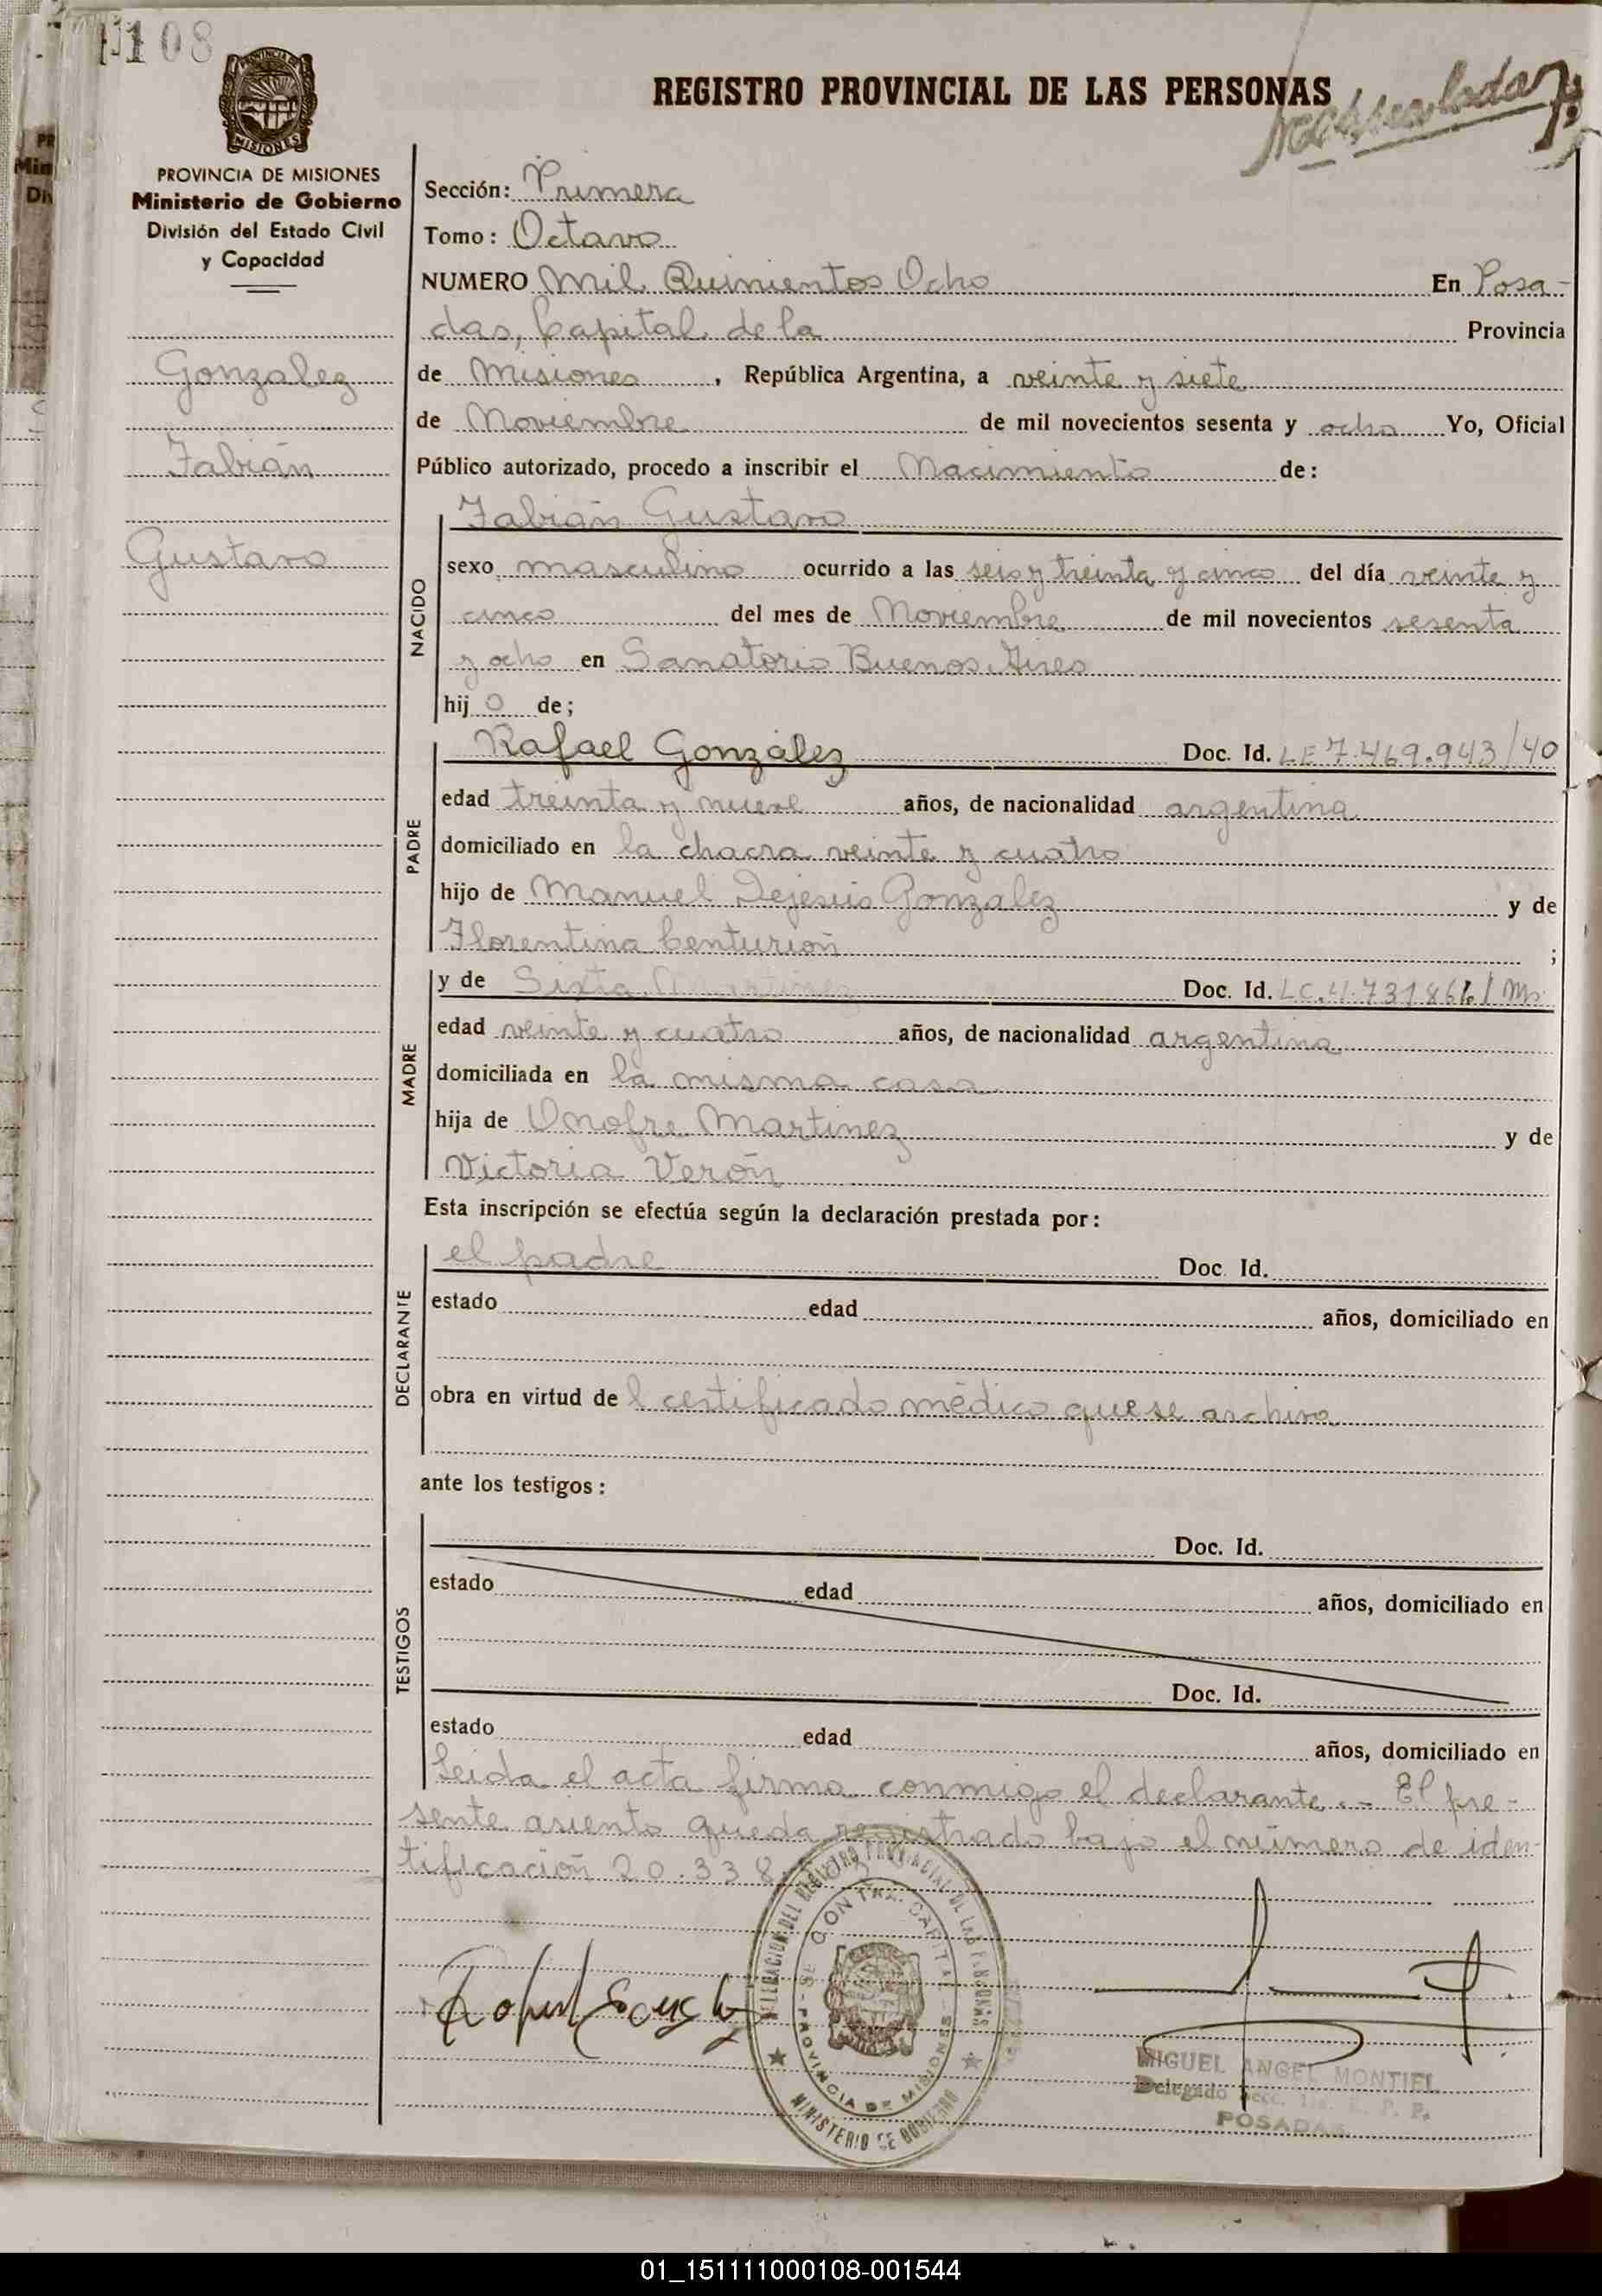 108
REGISTRO PROVINCIAL DE LAS PERSONAS
MISIONES
PROVINCIA DE MISIONES
Ministerio de Gobierno
División del Estado Civil
y Capacidad
Gonzalez
Fabián
Gustavo
Sección: Primera
Tomo: Octavo
NUMERO Mil Quinientos Ocho En Posa-
das, Capital de la Provincia
de Misiones, República Argentina, a veinte y siete
de Noviembre de mil novecientos sesenta y ocho Yo, Oficial
Público autorizado, procedo a inscribir el Nacimiento de:
NACIDO
Fabián Gustavo
sexo masculino ocurrido a las seis y treinta y cinco del día veinte y
cinco del mes de Noviembre de mil novecientos sesenta
y ocho en Sanatorio Buenos Aires
hijo de;
PADRE
Rafael Gonzalez Doc. Id. LE 7.469.943/40
edad treinta y nueve años, de nacionalidad argentina
domiciliado en la chacra veinte y cuatro
hijo de Manuel Dejesús Gonzalez y de
Florentina Centurión ;
MADRE
y de Sixta Martinez Doc. Id. LC.4.731.861/Ms
edad veinte y cuatro años, de nacionalidad argentina
domiciliada en la misma casa
hija de Onofre Martinez y de
Victoria Verón
Esta inscripción se efectúa según la declaración prestada por:
DECLARANTE
el padre Doc. Id.
estado edad años, domiciliado en
obra en virtud de l certificado médico que se archiva
ante los testigos:
TESTIGOS
Doc. Id.
estado edad años, domiciliado en
Doc. Id.
estado edad años, domiciliado en
Leida el acta firma conmigo el declarante.- El pre-
sente asiento queda registrado bajo el número de iden-
tificación 20.338.
DELEGACION DEL REGISTRO PROVINCIAL DE LAS PERSONAS
PROVINCIA DE MISIONES
MINISTERIO DE GOBIERNO
MIGUEL ANGEL MONTIEL
Delegado Secc. 1ra. R. P. P.
POSADAS
01_151111000108-001544